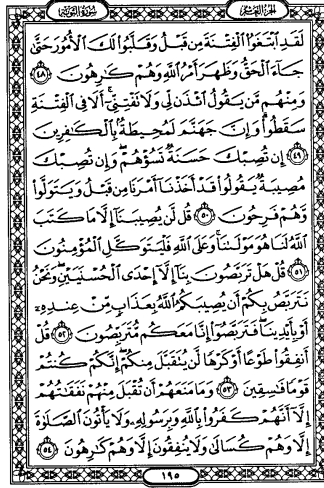 الجزء العاشر سورة التوبة
لَقَدِ ابْتَغَوُا الْفِتْنَةَ مِن قَبْلُ وَقَلَّبُوا لَكَ الْأُمُورَ حَتَّىٰ
جَاءَ الْحَقُّ وَظَهَرَ أَمْرُ اللَّهِ وَهُمْ كَارِهُونَ ٤٨
وَمِنْهُم مَّن يَقُولُ ائْذَن لِّي وَلَا تَفْتِنِّي أَلَا فِي الْفِتْنَةِ
سَقَطُوا وَإِنَّ جَهَنَّمَ لَمُحِيطَةٌ بِالْكَافِرِينَ
٤٩ إِن تُصِبْكَ حَسَنَةٌ تَسُؤْهُمْ وَإِن تُصِبْكَ
مُصِيبَةٌ يَقُولُوا قَدْ أَخَذْنَا أَمْرَنَا مِن قَبْلُ وَيَتَوَلَّوا
وَّهُمْ فَرِحُونَ ٥٠ قُل لَّن يُصِيبَنَا إِلَّا مَا كَتَبَ
اللَّهُ لَنَا هُوَ مَوْلَانَا وَعَلَى اللَّهِ فَلْيَتَوَكَّلِ الْمُؤْمِنُونَ
٥١ قُلْ هَلْ تَرَبَّصُونَ بِنَا إِلَّا إِحْدَى الْحُسْنَيَيْنِ وَنَحْنُ
نَتَرَبَّصُ بِكُمْ أَن يُصِيبَكُمُ اللَّهُ بِعَذَابٍ مِّنْ عِندِهِ
أَوْ بِأَيْدِينَا فَتَرَبَّصُوا إِنَّا مَعَكُم مُّتَرَبِّصُونَ ٥٢ قُلْ
أَنفِقُوا طَوْعًا أَوْ كَرْهًا لَّن يُتَقَبَّلَ مِنكُمْ إِنَّكُمْ كُنتُمْ
قَوْمًا فَاسِقِينَ ٥٣ وَمَا مَنَعَهُمْ أَن تُقْبَلَ مِنْهُمْ نَفَقَاتُهُمْ
إِلَّا أَنَّهُمْ كَفَرُوا بِاللَّهِ وَبِرَسُولِهِ وَلَا يَأْتُونَ الصَّلَاةَ
إِلَّا وَهُمْ كُسَالَىٰ وَلَا يُنفِقُونَ إِلَّا وَهُمْ كَارِهُونَ ٥٤
١٩٥